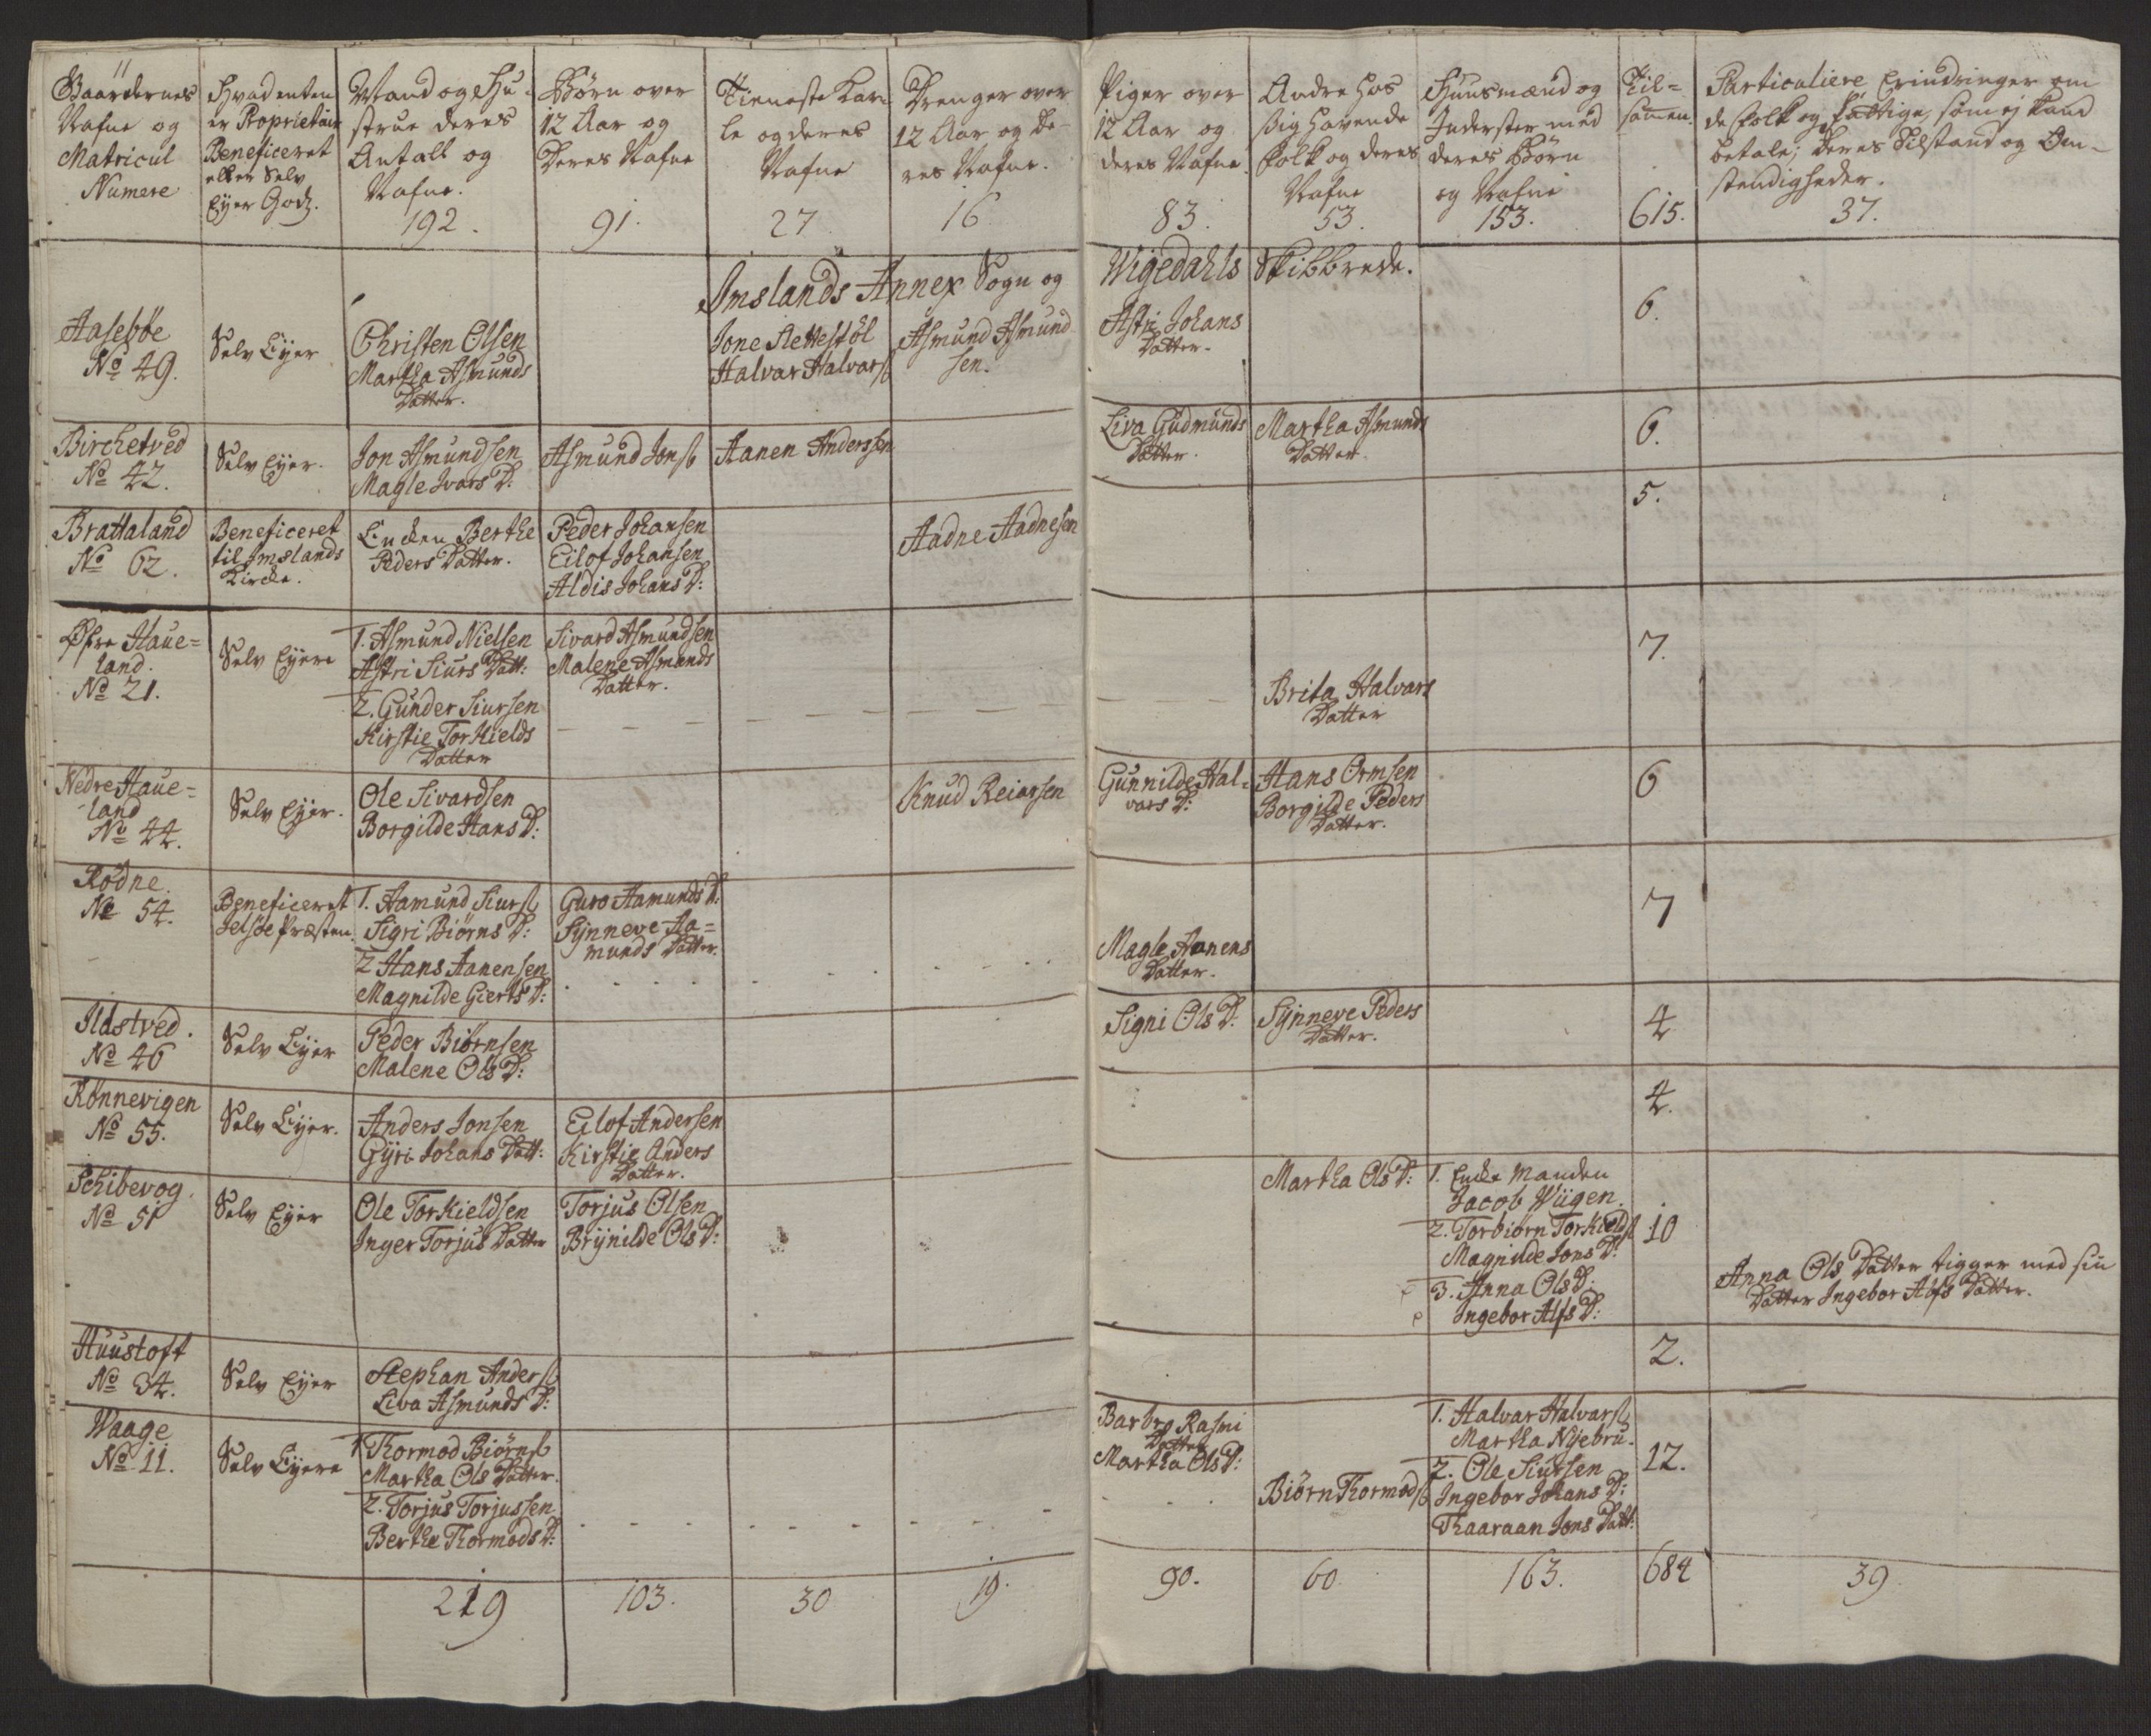 Gaardernes
Nafne og
Matricul
Numere
Hvad enten
er Proprietair
Beneficeret
eller Selv
Eyer Godz.
Mand og Hu-
strue deres
Antall og
Nafne.
192.
Børn over
12 Aar og
Deres Nafne
91.
Tieneste Kar-
le og deres
Nafne
27
Drenger over
12 Aar og De-
res Nafne.
16
Piger over
12 Aar og
deres Nafne.
83.
Andre hos
sig havende
folk og deres
Nafne
53.
Huusmænd og
Inderster med
deres Børn
og Nafne
153.
Til=
samen.
615.
Particuliere Erindringer om
de folk og fattige, som ej kand
betale; deres Tilstand og Om-
stendigheder.
37.
Imslands Annex Sogn og Wigedahls Skibbrede.
Aasebøe
No 49.
Selv Eyer
Christen Olsen
Martha Asmunds
Datter.
Jone Aettestøl
Halvar Halvars
Asmund Asmund
sen.
Astri Johans
Datter.
6.
Birchetved
No 42.
Selv Eyer.
Jon Asmundsen
Magle Ivars D:
Asmund Jons
Aanen Anderssen
Liva Gudmunds
Datter.
Martha Asmunds
Datter.
6.
Brattaland
No 62.
Beneficeret
til Imslands
Kircke.
Encken Berthe
Peders Datter.
Peder Johansen
Eilof Johansen
Aldis Johans D:
Aadne Aadnesen
5.
Øfre Haue=
land.
No 21.
Selv Eyere
1. Asmund Nielsen
Astri Siurs Datt:
2. Gunder Siursen
Kirstie Torkields
Datter
Sivard Asmundsen
Malene Asmunds
Datter.
Brita Halvars
Datter
7.
Nedre Haue=
land
No 44.
Selv Eyer.
Ole Sivardsen
Borgilde Hans D:
Knud Reiarsen
Gunnilde Hal=
vars D:
Hans Ormsen
Borgilde Peders
Datter.
6
Rødne.
No 54.
Beneficeret
Jelsøe Præsten.
1. Aamund Siurs
Sigri Biørns D:
2 Hans Aanensen
Magnilde Gierts D:
Guro Aamunds D:
Synneve Aa=
munds Datter.
Magle Aanens
Datter.
7
Ildstved.
No 46
Selv Eyer
Peder Biørnsen
Malene Ols D:
Signi Ols D.
Synneve Peders
Datter.
4
Rønnevigen
No 55.
Selv Eyer.
Anders Jonsen
Gyri Johans Datt:
Eilof Andersen
Kirstie Anders
Datter.
4.
Schibevog.
No 51
Selv Eyer
Ole Torkieldsen
Inger Torjus Datter
Torjus Olsen
Brynilde Ols D:
Martha Ols D:
1. Encke Manden
Jacob Wiigen.
2. Torbiørn Torkields
Magnilde Jons D:
3. Anna Ols D:
Ingebor Alfs D:
10
Anna Ols Datter tigger med sin
Datter Ingebor Alfs Datter.
Huustoft
No 34.
Selv Eyer
Stephan Anders
Liva Asmunds D:
2.
Waage
No 11.
Selv Eyere
1 Thormod Biørns
Martha Ols Datter.
2. Torjus Torjussen
Berthe Thormods D:
Barbro Rasmi
Datter
Martha Ols D:
Biørn Thormods
1. Halvar Halvars
Martha Nyebru.
2. Ole Siursen
Ingebor Johans D:
Thaaraan Jons Datt:
12.
219
103.
30
19.
90.
60
163.
684
39